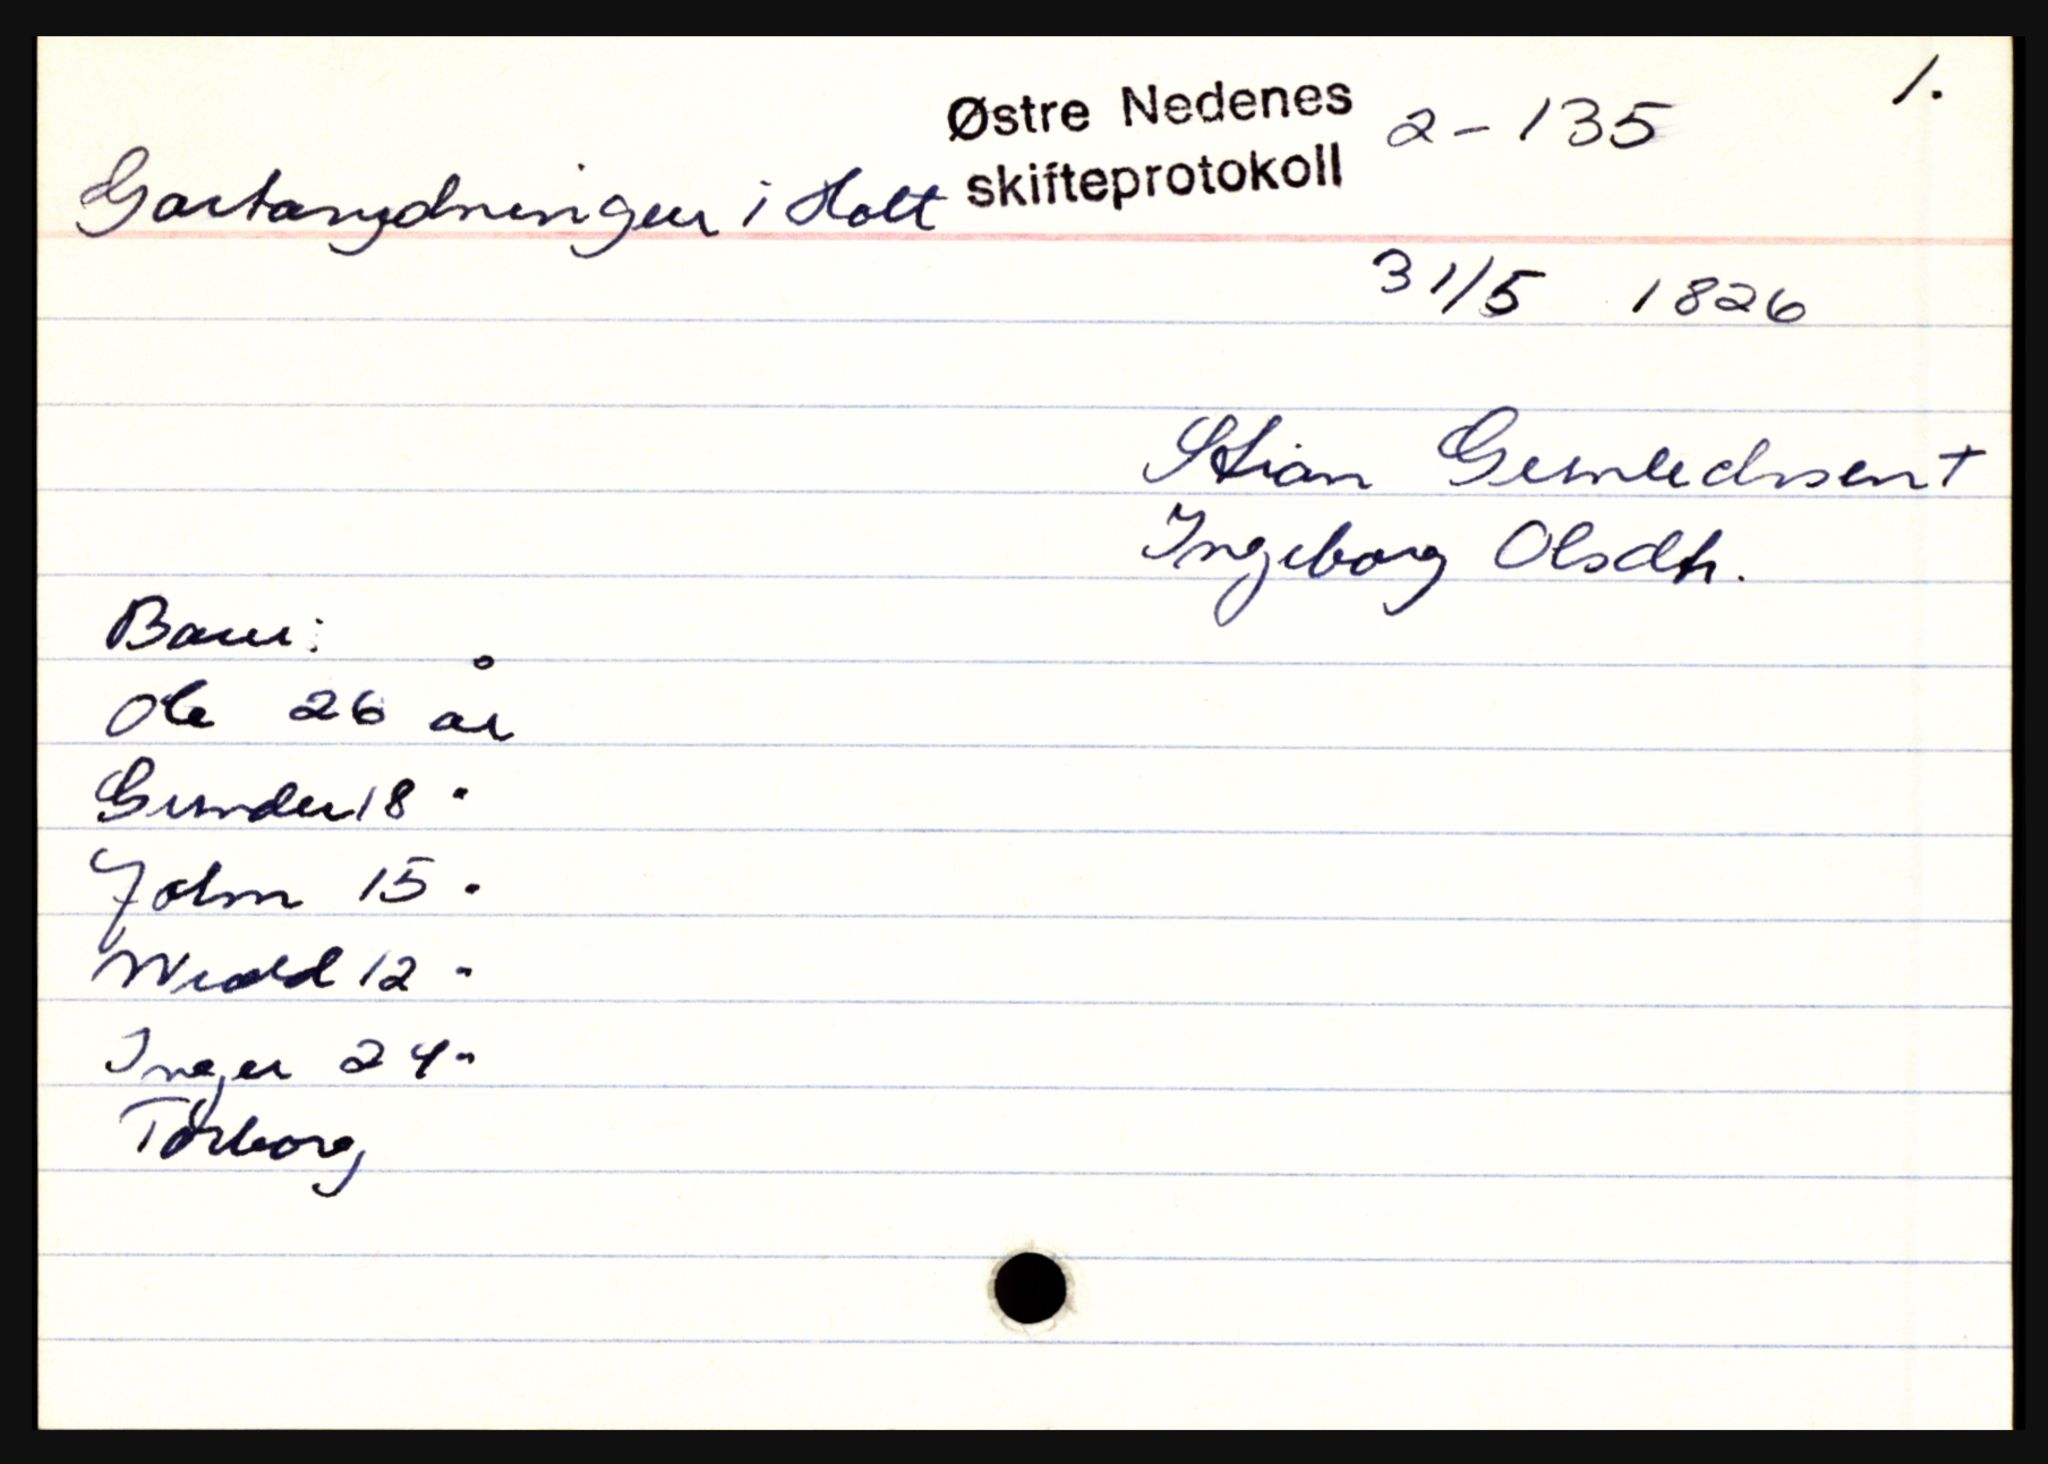 1.
Østre Nedenes 2-135
skifteprotokoll
Gartarydningen i Holt
31/5 1826
Stian Gunledsen +
Ingeborg Olsdtr.
Barn:
Ole 26 år
Gunder 18 "
John 15 "
12 "
Inger 24 "
Torborg